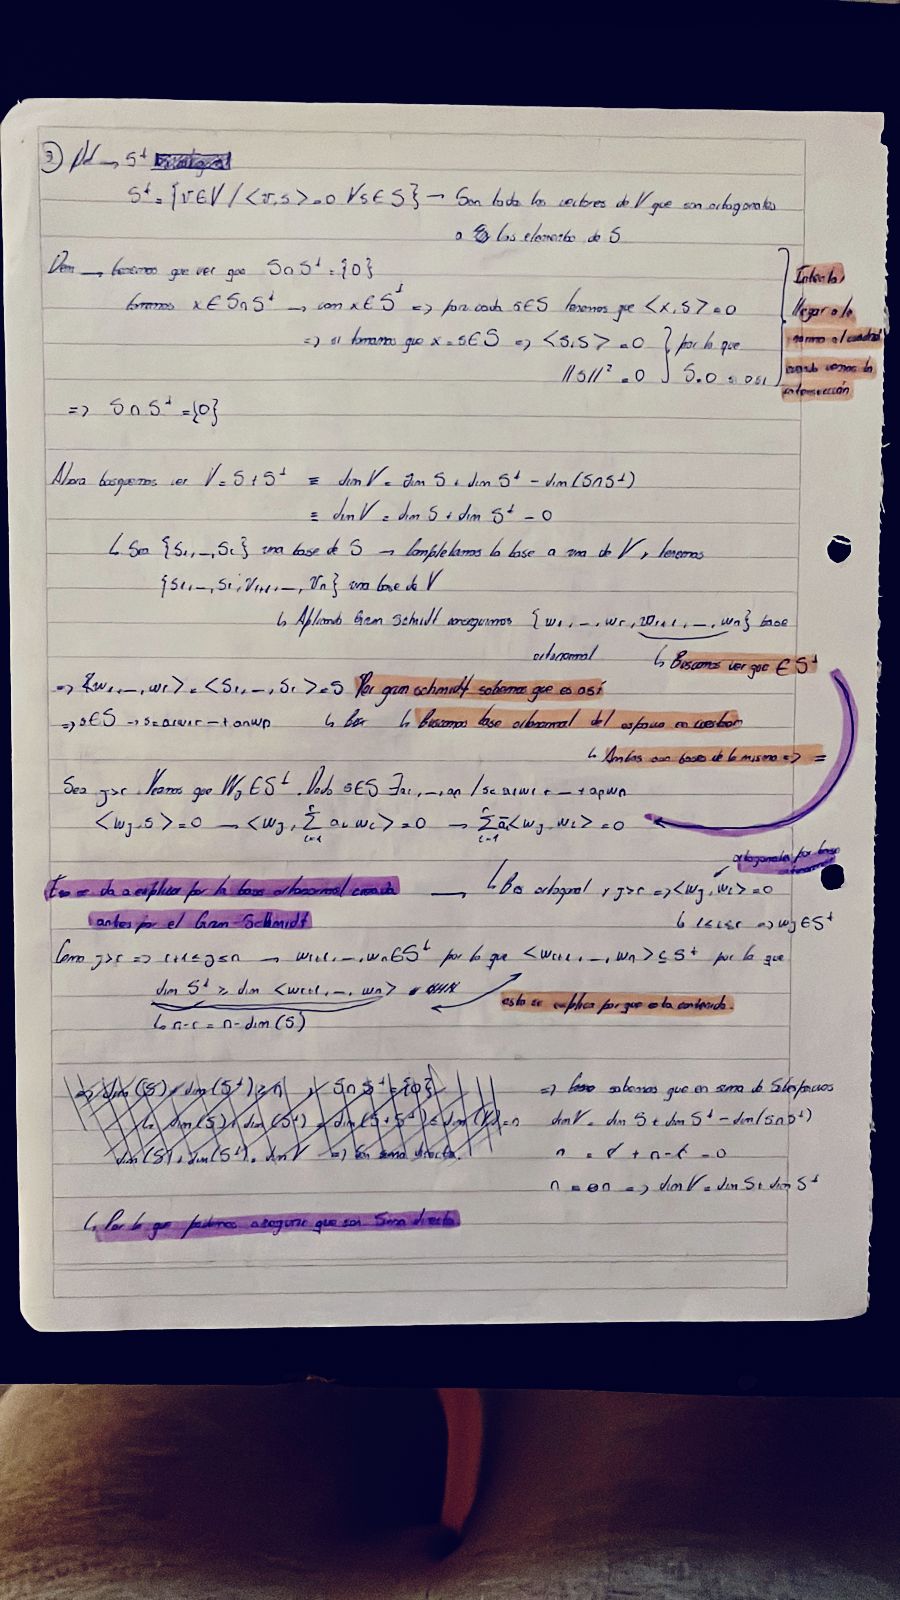 3) Def → S⊥
S⊥ = {v∈V / <v,s> = 0 ∀s∈S} → Son todos los vectores de V que son ortogonales
a los elementos de S
Dem → tenemos que ver que S∩S⊥ = {0}
tomamos x∈S∩S⊥ → con x∈S⊥ => por cada s∈S tenemos que <x,s> = 0
=> si tomamos que x=s∈S => <s,s> = 0 } por lo que
||s||² = 0
=> S∩S⊥ = {0}
Intento
llegar a la
norma al cuadrado
cuando vemos la
intersección
Ahora busquemos ver V = S+S⊥ ≡ dim V = dim S + dim S⊥ - dim(S∩S⊥)
≡ dim V = dim S + dim S⊥ - 0
↳ Sea {s1,…,sr} una base de S → completamos la base a una de V, tenemos
{s1,…,sr,vr+1,…,vn} una base de V
↳ Aplicando Gram Schmidt conseguimos {w1,…,wr,wr+1,…,wn} base
ortonormal ↳ Buscamos ver que ∈S⊥
=> <w1,…,wr> = <s1,…,sr> = S Por gram schmidt sabemos que es así
=> s∈S → s=a1w1 + … + anwn ↳ ↳ Buscamos base ortonormal del espacio en cuestion
↳ Ambas son base de lo mismo => =
Sea j>r. Veamos que Wj∈S⊥. Dado s∈S ∃a1,…,an / s=a1w1 + … + anwn
<wj,s> = 0 → <wj, Σ ai wi> = 0 → Σ ai<wj,wi> = 0
ortogonales por base
ortonormal
Eso se da a explicar por la base ortonormal creada → ↳ ortogonal y j>r => <wj,wi> = 0
antes por el Gram-Schmidt ↳ 1≤i≤r => wj∈S⊥
Como j>r => r+1≤j≤n → wr+1,…,wn∈S⊥ por lo que <wr+1,…,wn> ⊆ S⊥ por lo que
dim S⊥ ≥ dim <wr+1,…,wn>
esto se explica por que esta contenido.
↳ n-r = n-dim(S)
=> dim(S) + dim(S⊥) ≥ n , S∩S⊥ = {0}
↳ dim(S) + dim(S⊥) = dim(S+S⊥) ≤ dim(V) = n
dim(S) + dim(S⊥) = dim V => En suma directa.
=> sabemos que en suma de Subespacios
dim V = dim S + dim S⊥ - dim(S∩S⊥)
n = r + n-r - 0
n = n => dim V = dim S + dim S⊥
↳ Por lo que podemos asegurar que son Suma directa.